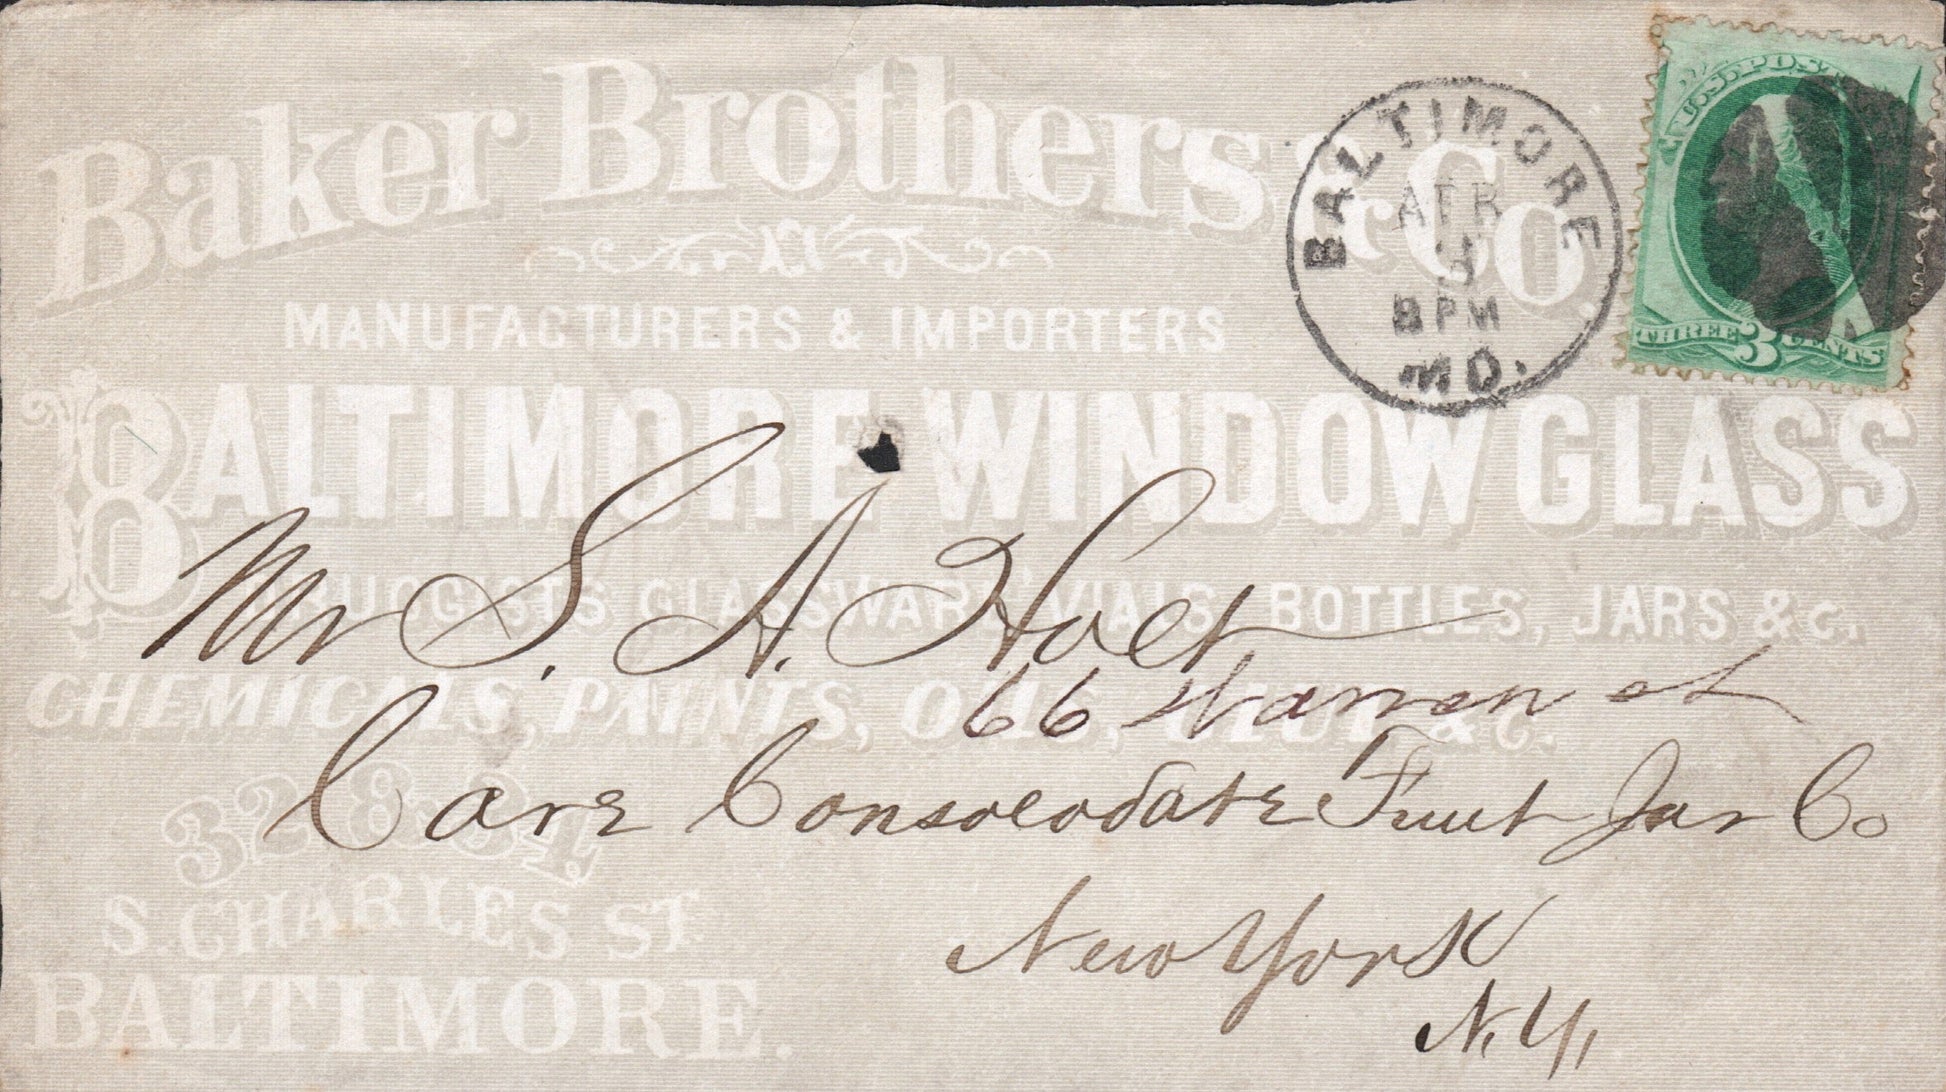 Baker Brothers & Co.
MANUFACTURERS & IMPORTERS
BALTIMORE WINDOW GLASS
DRUGGISTS GLASSWARE, VIALS, BOTTLES, JARS & C.
CHEMICALS, PAINTS, OILS, &C.
32 & 34.
S. CHARLES ST
BALTIMORE.
BALTIMORE
APR
8 PM
MD.
U.S. POST
THREE 3 CENTS
Mr S. A. Holt
66 Warren st
Care Consolodate Fruit Jar Co
New York
N.Y.